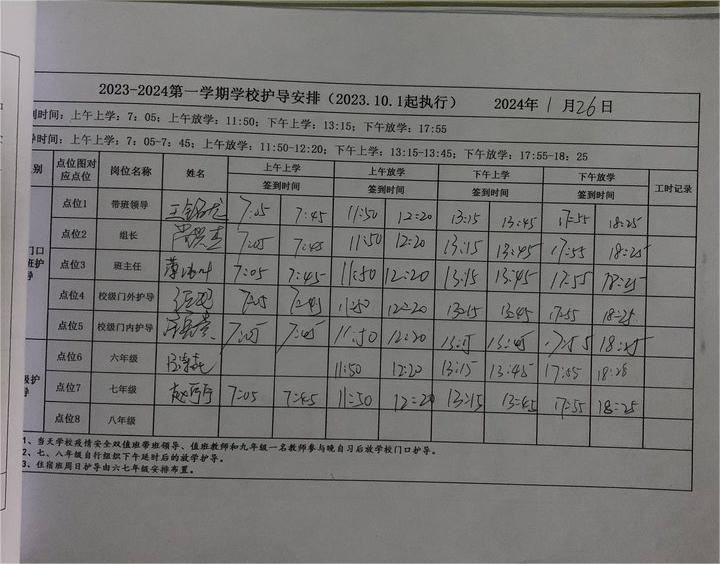 2023-2024第一学期学校护导安排（2023.10.1起执行） 2024年 1 月26日
到时间：上午上学：7：05；上午放学：11:50；下午上学：13:15；下午放学：17:55
导时间：上午上学：7：05-7：45；上午放学：11:50-12:20；下午上学：13:15-13:45；下午放学：17:55-18：25
别 点位图对应点位 岗位名称 姓名 上午上学 上午放学 下午上学 下午放学 工时记录
签到时间 签到时间 签到时间 签到时间
点位1 带班领导 7:05 7:45 11:50 12:20 13:15 13:45 17:55 18:25
点位2 组长 7:05 7:45 11:50 12:20 13:15 13:45 17:55 18:25
门口
班护
导
点位3 班主任 7:05 7:45 11:50 12:20 13:15 13:45 17:55 18:25
点位4 校级门外护导 7:05 7:45 11:50 12:20 13:15 13:45 17:55 18:25
点位5 校级门内护导 7:05 7:45 11:50 12:20 13:15 13:45 17:55 18:25
点位6 六年级 11:50 12:20 13:15 13:45 17:55 18:28
级护
导
点位7 七年级 7:05 7:45 11:50 12:20 13:15 13:45 17:55 18:25
点位8 八年级
1、当天学校疫情安全双值班带班领导、值班教师和九年级一名教师参与晚自习后放学校门口护导。
2、七、八年级自行组织下午延时后的放学护导。
3、住宿班周日护导由六七年级安排布置。